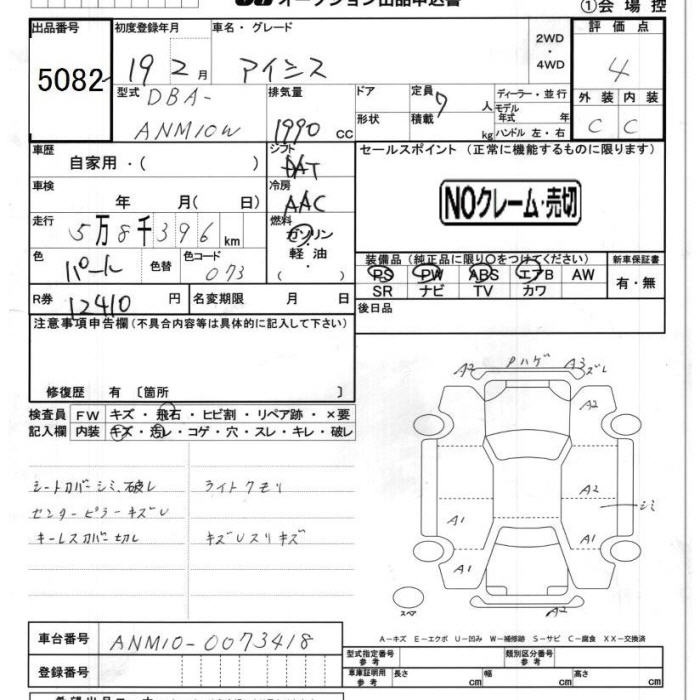 オークション出品申込書
①会場控
出品番号 初度登録年月 車名・グレード 2WD・4WD 評価点
5082 19 2月 アイシス 4
型式 DBA-ANM10W 排気量 1990 cc
ドア 定員 7 人 ディーラー・並行
形状 積載 kg モデル年式 年 ハンドル 左・右
外装 内装
C C
車歴 自家用・( ) シフト AT
セールスポイント (正常に機能するものに限ります)
NOクレーム・売切
車検 年 月( 日) 冷房 AAC
走行 5万8千396km 燃料 ガソリン 軽油 ・
色 パール 色替 色コード 073
装備品 (純正品に限り○をつけてください) 新車保証書
PS PW ABS エアB AW 有・無
SR ナビ TV カワ
R券 12410円 名変期限 月 日 後日品
注意事項申告欄(不具合内容等は具体的に記入して下さい)
修復歴 有 〔箇所 〕
検査員 FW キズ・飛石・ヒビ割・リペア跡・×要
記入欄 内装 キズ・汚レ・コゲ・穴・スレ・キレ・破レ
シートカバーシミ、破レ ライトクモリ
センターピラーキズU
キーレスカバー切レ キズUスリキズ
A2 Pハゲ A3 ズレ
A2
A2
シミ
A1
A1 A1
スペア
A2
A-キズ E-エクボ U-凹み W-補修跡 S-サビ C-腐食 XX-交換済
車台番号 ANM10-0073418
型式指定番号 参考 類別区分番号 参考
登録番号
車庫証明用 参考 長さ cm 幅 cm 高さ cm